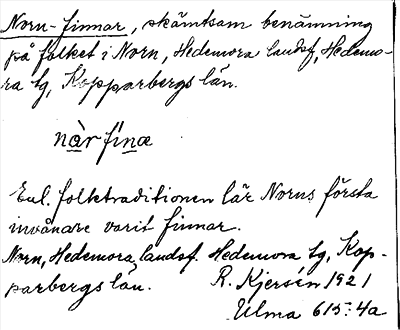 Norn-finnar, skämtsam benämning
på folket i Norn, Hedemora landsf, Hedemo-
ra tg, Kopparbergs län.
nàr fínæ
Enl. folktraditionen lär Norns första
invånare varit finnar.
Norn, Hedemora landsf. Hedemora tg, Kop-
parbergs län. R. Kjersén 1921
Ulma 615:4a